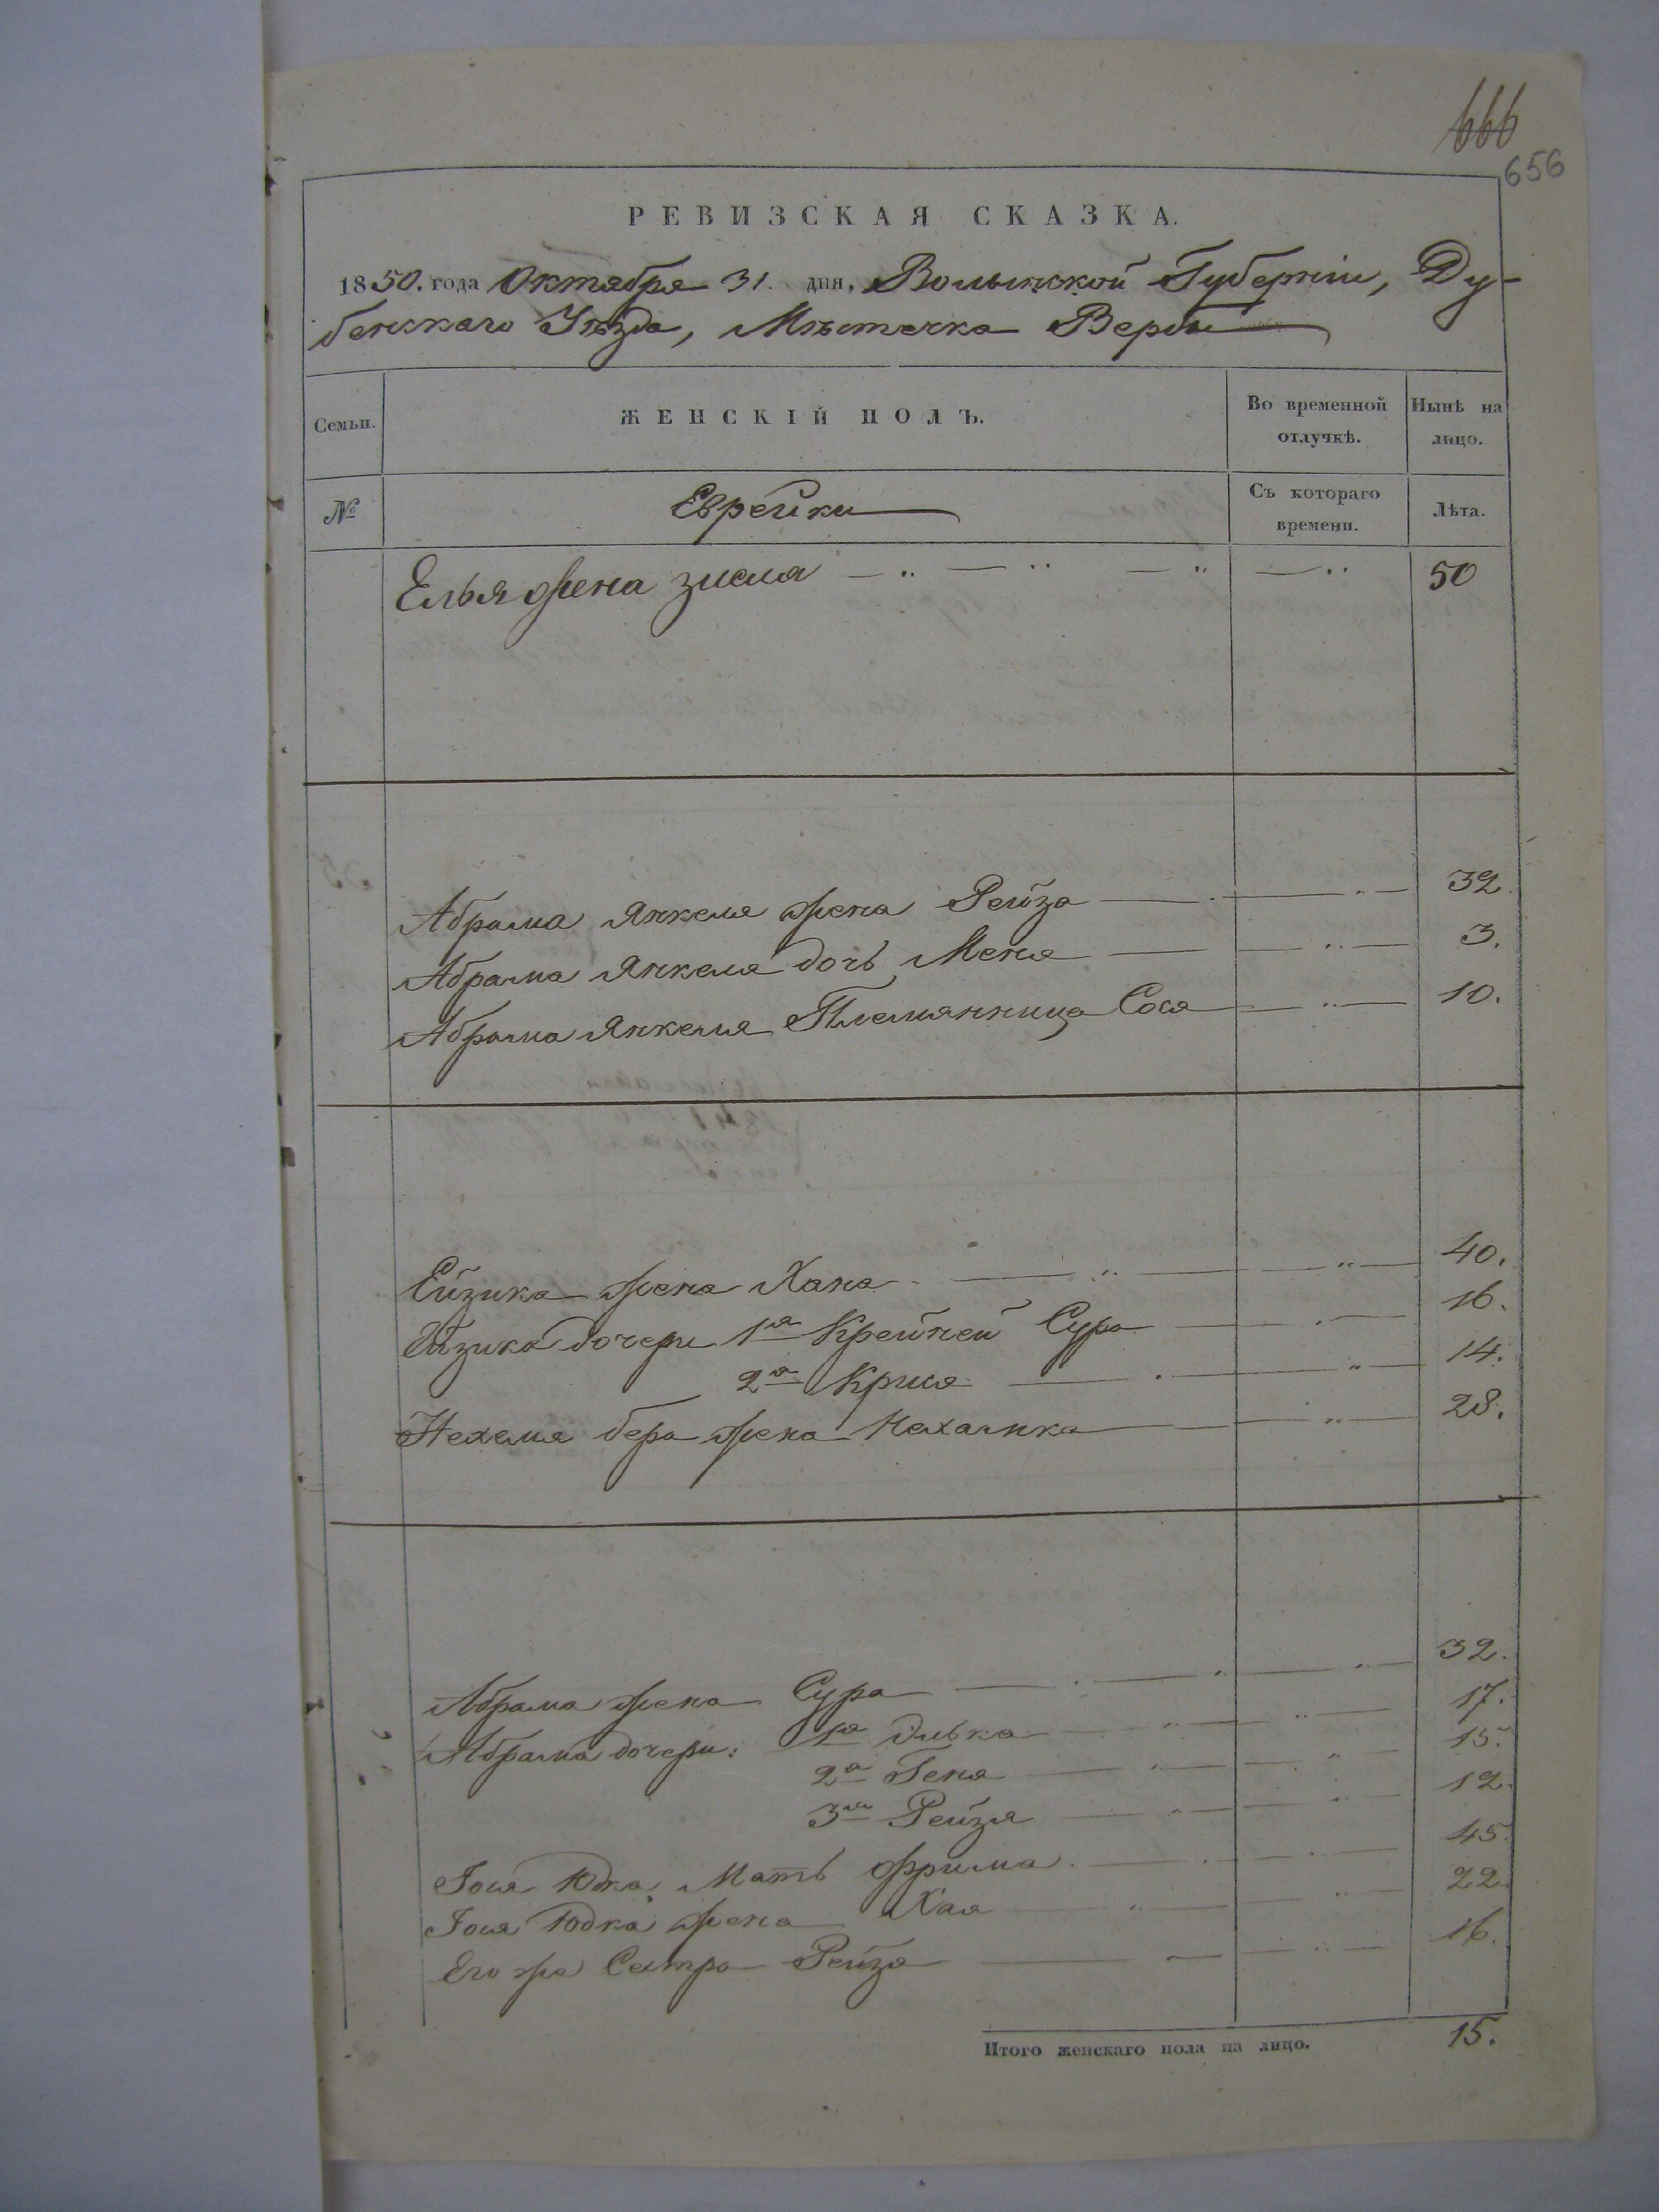 666
656
РЕВИЗСКАЯ СКАЗКА.
1850. года Октября 31. дня, Волынской Губерніи, Ду-
бенскаго Уѣзда, Мѣстечка Вербы
Семьи.
ЖЕНСКІЙ ПОЛЪ.
Во временной отлучкѣ.
Нынѣ на лицо.
№
Еврейки
Съ котораго времени.
Лѣта.
Елья жена зисля 50
Абрама Янкеля жена Рейза 32.
Абрама Янкеля дочь Меня 3.
Абрама Янкеля Племянница Сося 10.
Ейзика жена Хана 40.
Ейзика дочери 1я Крейней Сура 16.
2я Крися 14.
Нехемя бера жена Нехамка 28.
Абрама жена Сура 32.
Абрама дочери: 1я Элька 17.
2я Геня 15.
3я Рейзя 12.
Іося Юдка Мать Фрима 45.
Іося Юдка жена Хая 22.
Его же Сестра Рейза 16.
Итого женскаго пола на лицо. 15.